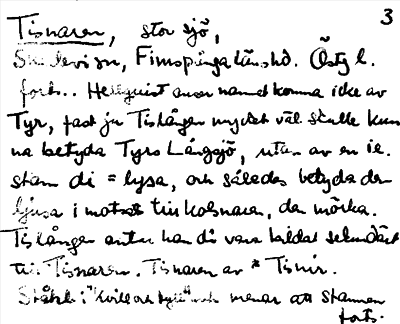 3
Tisnaren, stor sjö,
Skedevi sn, Finspånga länshd. Östg l.
forts.. Hellquist anser namnet komma icke av
Tyr, fast ju Tislången mycket väl skulle kun
na betyda Tyrs Långsjö, utan av en ie.
stam di = lysa, och således betyda den
ljusa i motsats till Kolsnaren, den mörka.
Tislången antar han då vara bildat sekundärt
till Tisnaren. Tisnaren av * Tisnir.
Ståhle i "Kvill och tyll" och menar att stammen
forts.